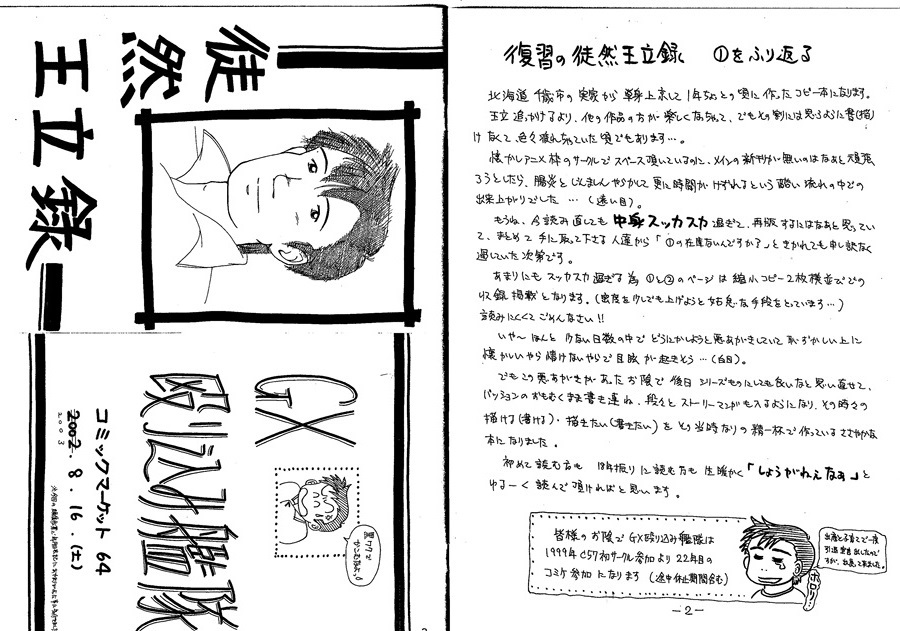 徒然
王立録
GX
殴り込み艦隊
黒ワクで
かこむなよ
コミックマーケット 64
2002. 8. 16. (土)
2003
復習の徒然王立録 ①をふり返る
北海道 千歳市の実家から単身上京して1年ちょっとの頃に作ったコピー本になります。
王立追いかけるより、他の作品の方が楽しくなっちゃって、でもその割には思うように書(描)
けなくて、色々荒れちゃっていた頃でもあります…。
懐かしアニメ枠のサークルでスペース頂いているのに、メインの新刊が無いのはなあと頑張
ろうとしたら、腸炎とじんましんやらかして更に時間がけずれるという酷い流れの中での
出来上がりでした … (遠い目)。
もうね、今読み直しても中身スッカスカ過ぎて、再販するにはなあと思ってい
て、まとめて手に取って下さる人達から「①の在庫ないんですか?」ときかれても申し訳なく
過していた次第です。
あまりにもスッカスカ過ぎる為 ①と②のページは縮小コピー2枚横並びでの
収録掲載となります。(密度を少しでも上げようと姑息な手段をとっています…)
読みにくくてごめんなさい!!
いや〜ほんと少ない日数の中でどうにかしようと悪あがきをしていて恥ずかしい上に
懐かしいやら情けないやらで目眩が起きそう…(白目)。
でもこの悪あがきがあったお陰で後日シリーズものにしても良いなと思い直せて、
パッションのおもむくまま書き連ね、段々とストーリーマンガも入るようになり、その時々の
描ける(書ける)・描きたい(書きたい)をその当時なりの精一杯で作っているささやかな
本になりました。
初めて読む方も 18年振りに読む方も生暖かく「しょうがねえなあ」と
ゆる〜く読んで頂ければと思います。
皆様のお陰でGX殴り込み艦隊は
1999年C57初サークル参加より22年目の
コミケ参加になります(途中休止期間含む)
出産と子育てで一度
引退宣言出したので
すが、出戻って来ました。
ポロリ…
－2－